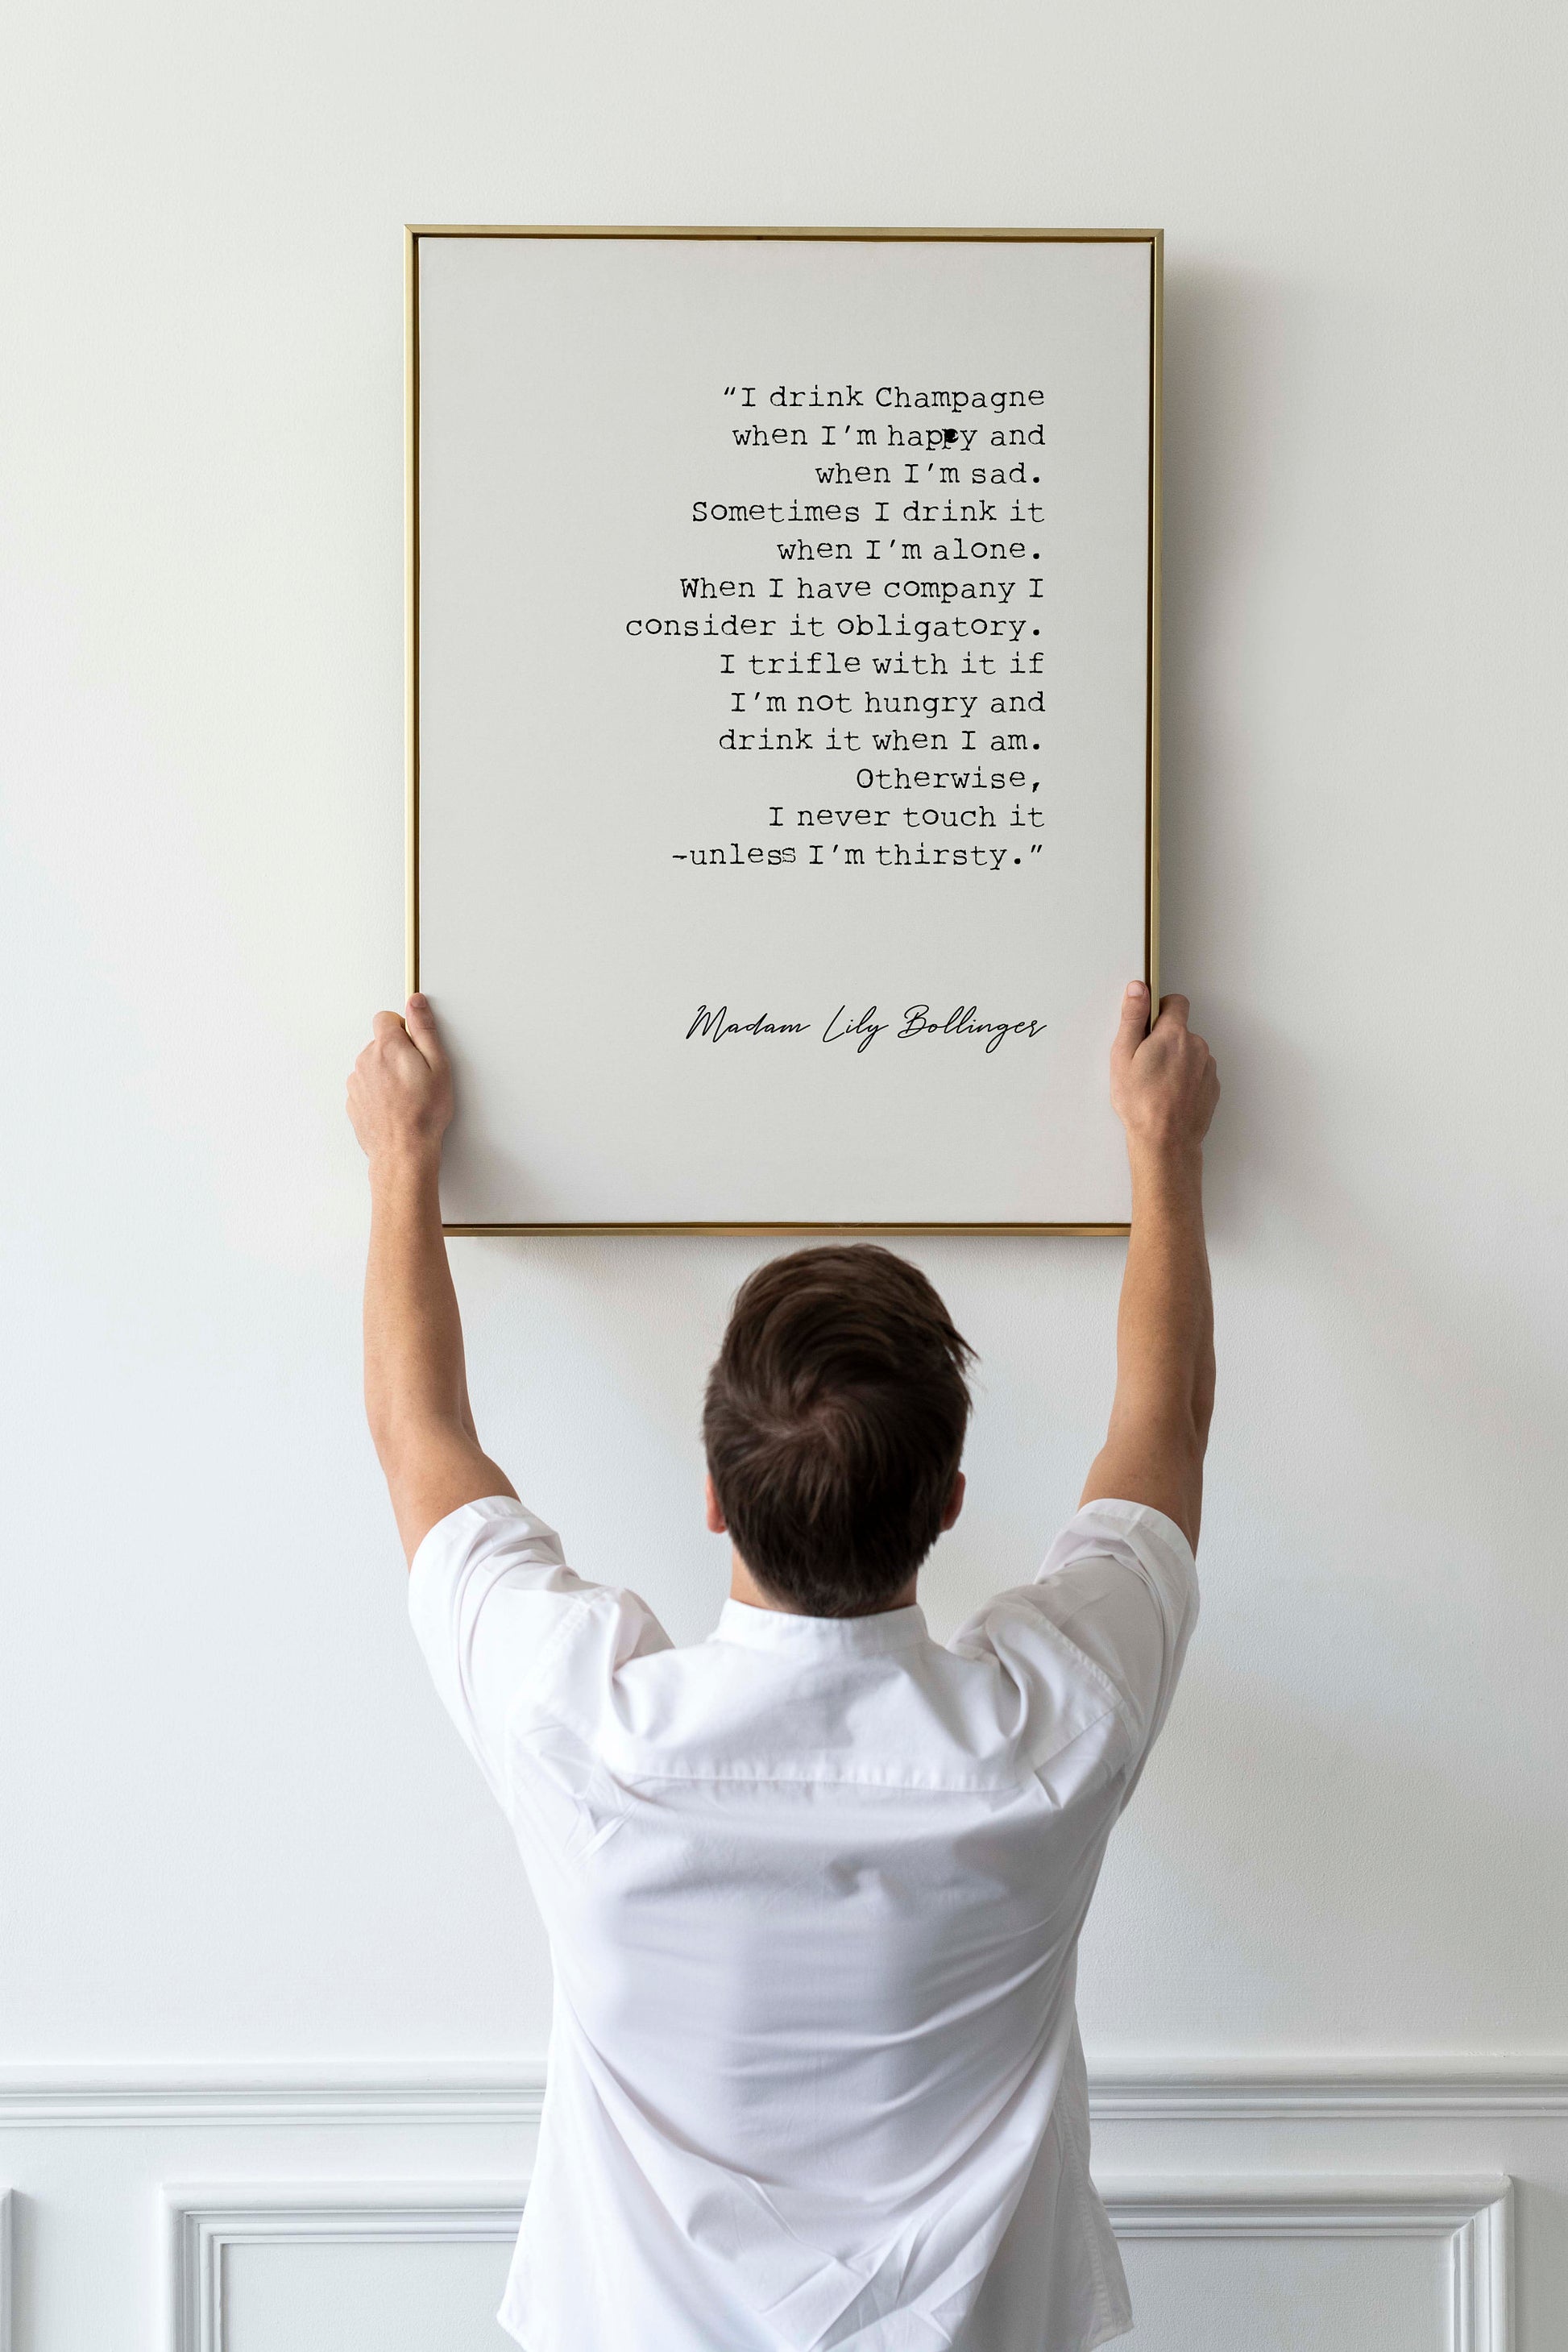 “I drink Champagne
when I’m happy and
when I’m sad.
Sometimes I drink it
when I’m alone.
When I have company I
consider it obligatory.
I trifle with it if
I’m not hungry and
drink it when I am.
Otherwise,
I never touch it
-unless I’m thirsty.”
Madam Lily Bollinger